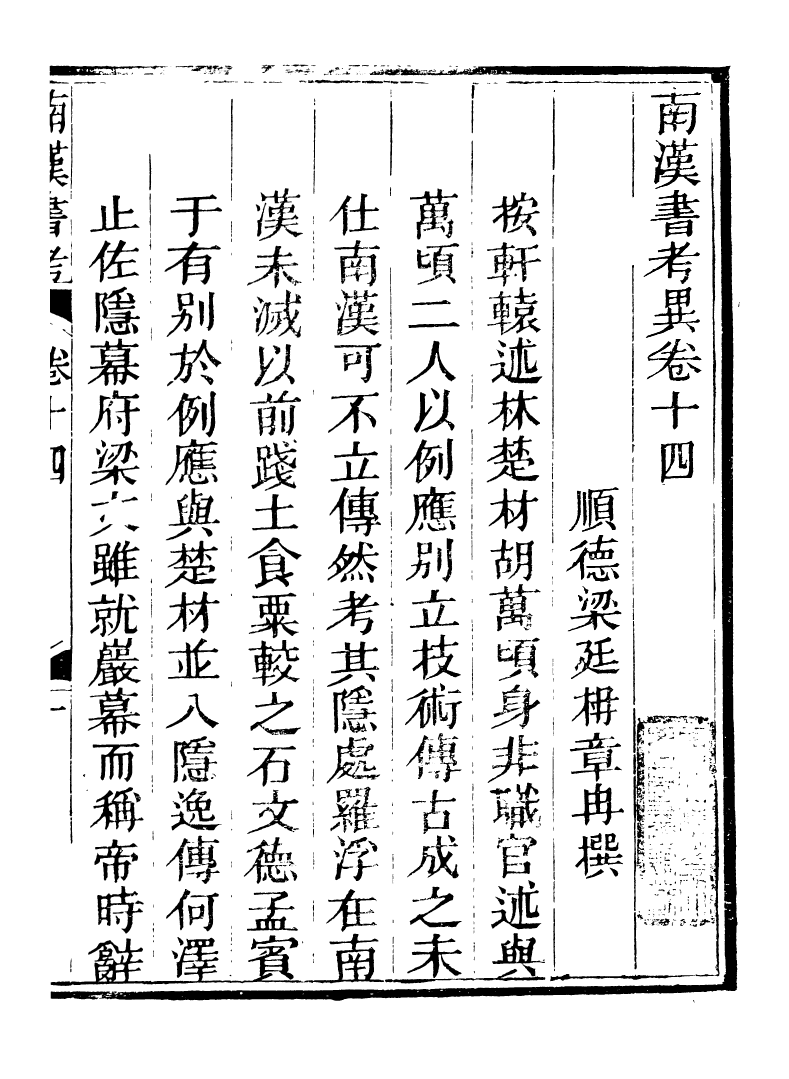 南漢書考異卷十四
順德梁廷枏章冉撰
按軒轅述林楚材胡萬頃身非職官述與
萬頃二人以例應別立技術傳古成之未
仕南漢可不立傳然考其隱處羅浮在南
漢未滅以前踐土食粟較之石文德孟賓
于有別於例應與楚材並入隱逸傳何澤
止佐隱幕府梁嵩雖就巖幕而稱帝時辭
南漢書考
卷十四
一